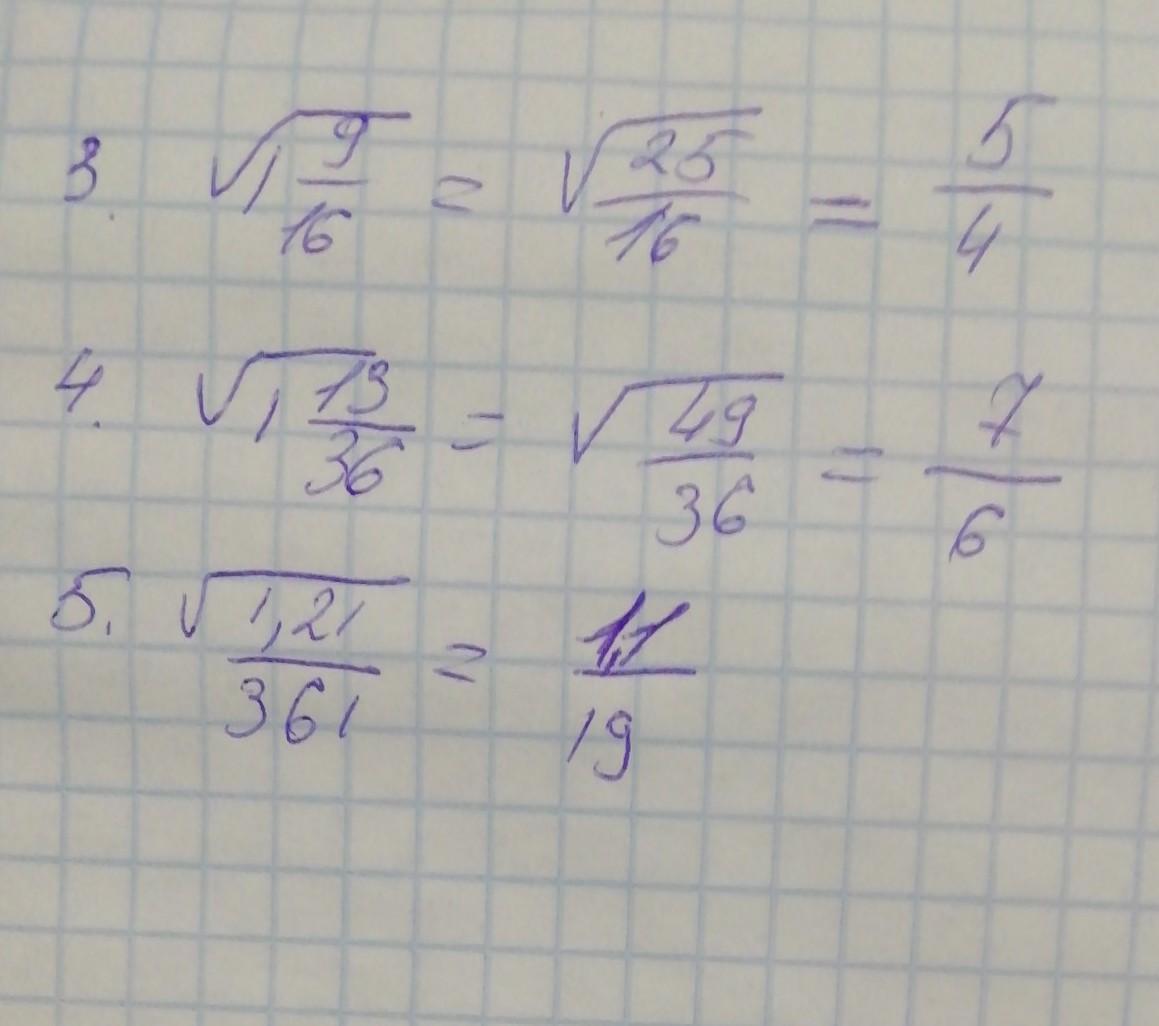 3. √1 9/16 = √25/16 = 5/4
4. √1 13/36 = √49/36 = 7/6
5. √1,21/361 = 1,1/19